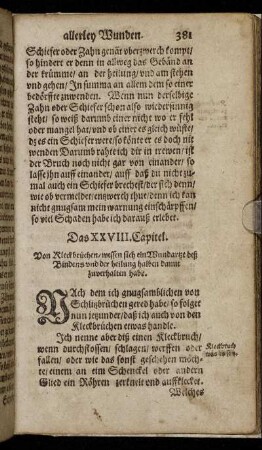 allerley Wunden. 381
Schiefer oder Zahn genär vberzwerch kompt/
so hindert er denn in allweg das Gebänd an
der krümme/ an der heilung/ vnd am stehen
vnd gehen/ In summa an allem dem so einer
bedörffte zuwenden. Wenn nun derselbige
Zahn oder Schiefer schon also widersinnig
steht/ so weiß darumb einer nicht wo er fehl
oder mangel hat/ vnd ob einer es gleich wüste/
dz es ein Schiefer were/ so könt er es doch nit
wenden Darumb rahte ich dir in trewen/ ist
der Bruch noch nicht gar von einander/ so
lasse ihn auff einander/ auff daß du nicht zu-
mal auch ein Schiefer brechest/ der sich denn/
wie ob vermeldet/ enzwerch thut/ denn ich kan
nicht gnugsam mein warnung einschärpffen/
so viel Schaden habe ich darauß erlebet.
Das XXVIII. Capitel.
Von Kleckbrüchen/ wessen sich ein Wundartzt deß
Bindens vnd der heilung halben damit
zuverhalten habe.
NAch dem ich gnugsamblichen von
Schlitzbrüchen gered habe/ so folget
nun ietzunder/ daß ich auch von den
Kleckbrüchen etwas handle.
Ich nenne aber diß einen Kleckbruch/
wenn durchstossen/ schlagen/ werffen oder
fallen/ oder wie das sonst geschehen möch-
te/ einem an eim Schenckel oder andern
Glied ein Röhren zerknelt vnd auffklecket.
Kleckbruch
was er sey.
Welches